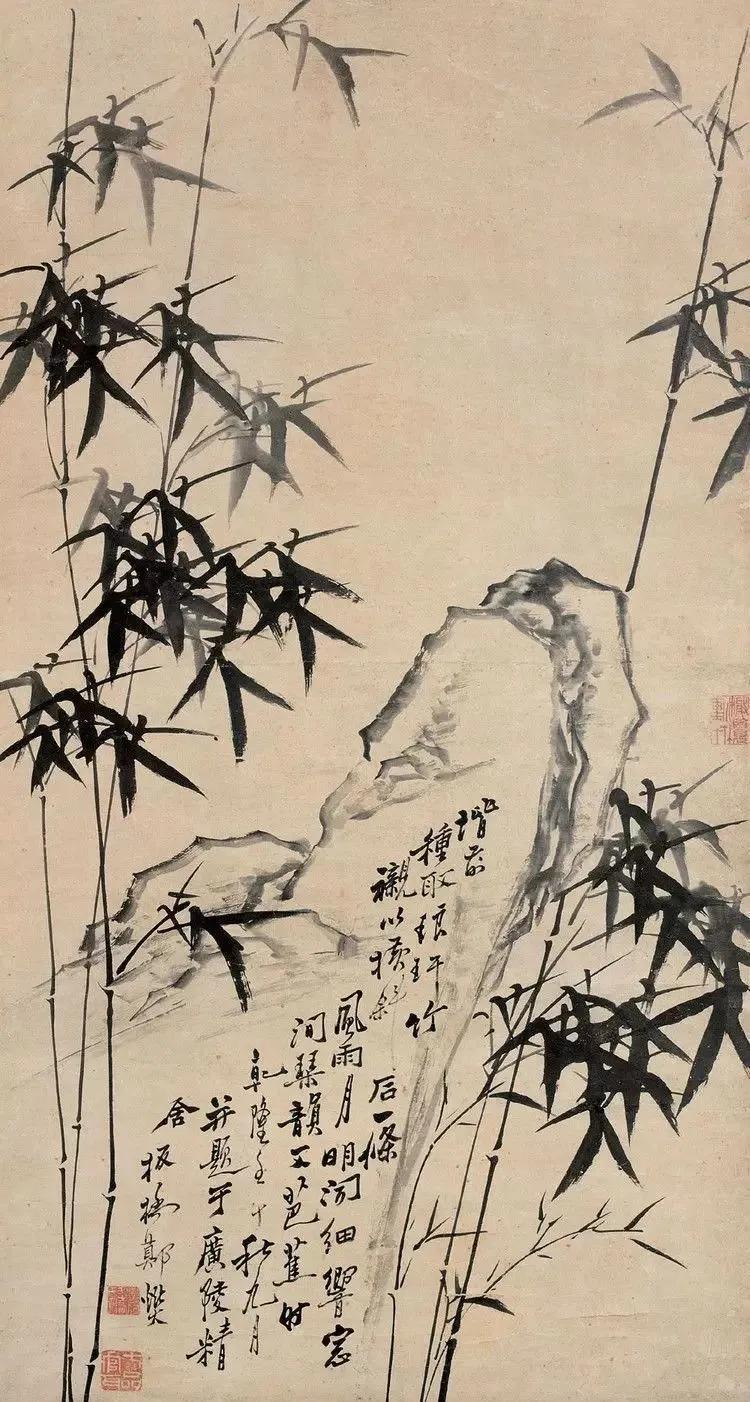 堦前
種取琅玕竹
襯以橫斜
石一條
風雨月明聞細響窓
間琴韻又芭蕉时
乾隆壬午秋九月
并題于廣陵精
舍板橋鄭燮